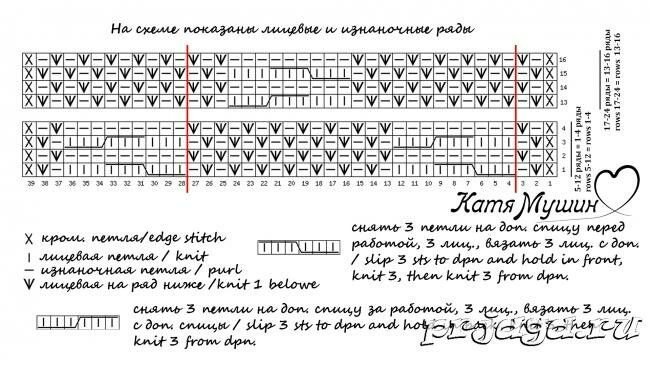 На схеме показаны лицевые и изнаночные ряды
16
15
14
13
17-24 ряды = 13-16 ряды
rows 17-24 = rows 13-16
4
3
2
1
5-12 ряды = 1-4 ряды
rows 5-12 = rows 1-4
39 38 37 36 35 34 33 32 31 30 29 28 27 26 25 24 23 22 21 20 19 18 17 16 15 14 13 12 11 10 9 8 7 6 5 4 3 2 1
Катя Мушин
X кром. петля/edge stitch
I лицевая петля / knit
— изнаночная петля / purl
V лицевая на ряд ниже /knit 1 belowe
снять 3 петли на доп. спицу перед
работой, 3 лиц., вязать 3 лиц. с доп.
/ slip 3 sts to dpn and hold in front,
knit 3, then knit 3 from dpn.
снять 3 петли на доп. спицу за работой, 3 лиц., вязать 3 лиц.
с доп. спицы / slip 3 sts to dpn and
knit 3 from dpn.
prjaga.ru